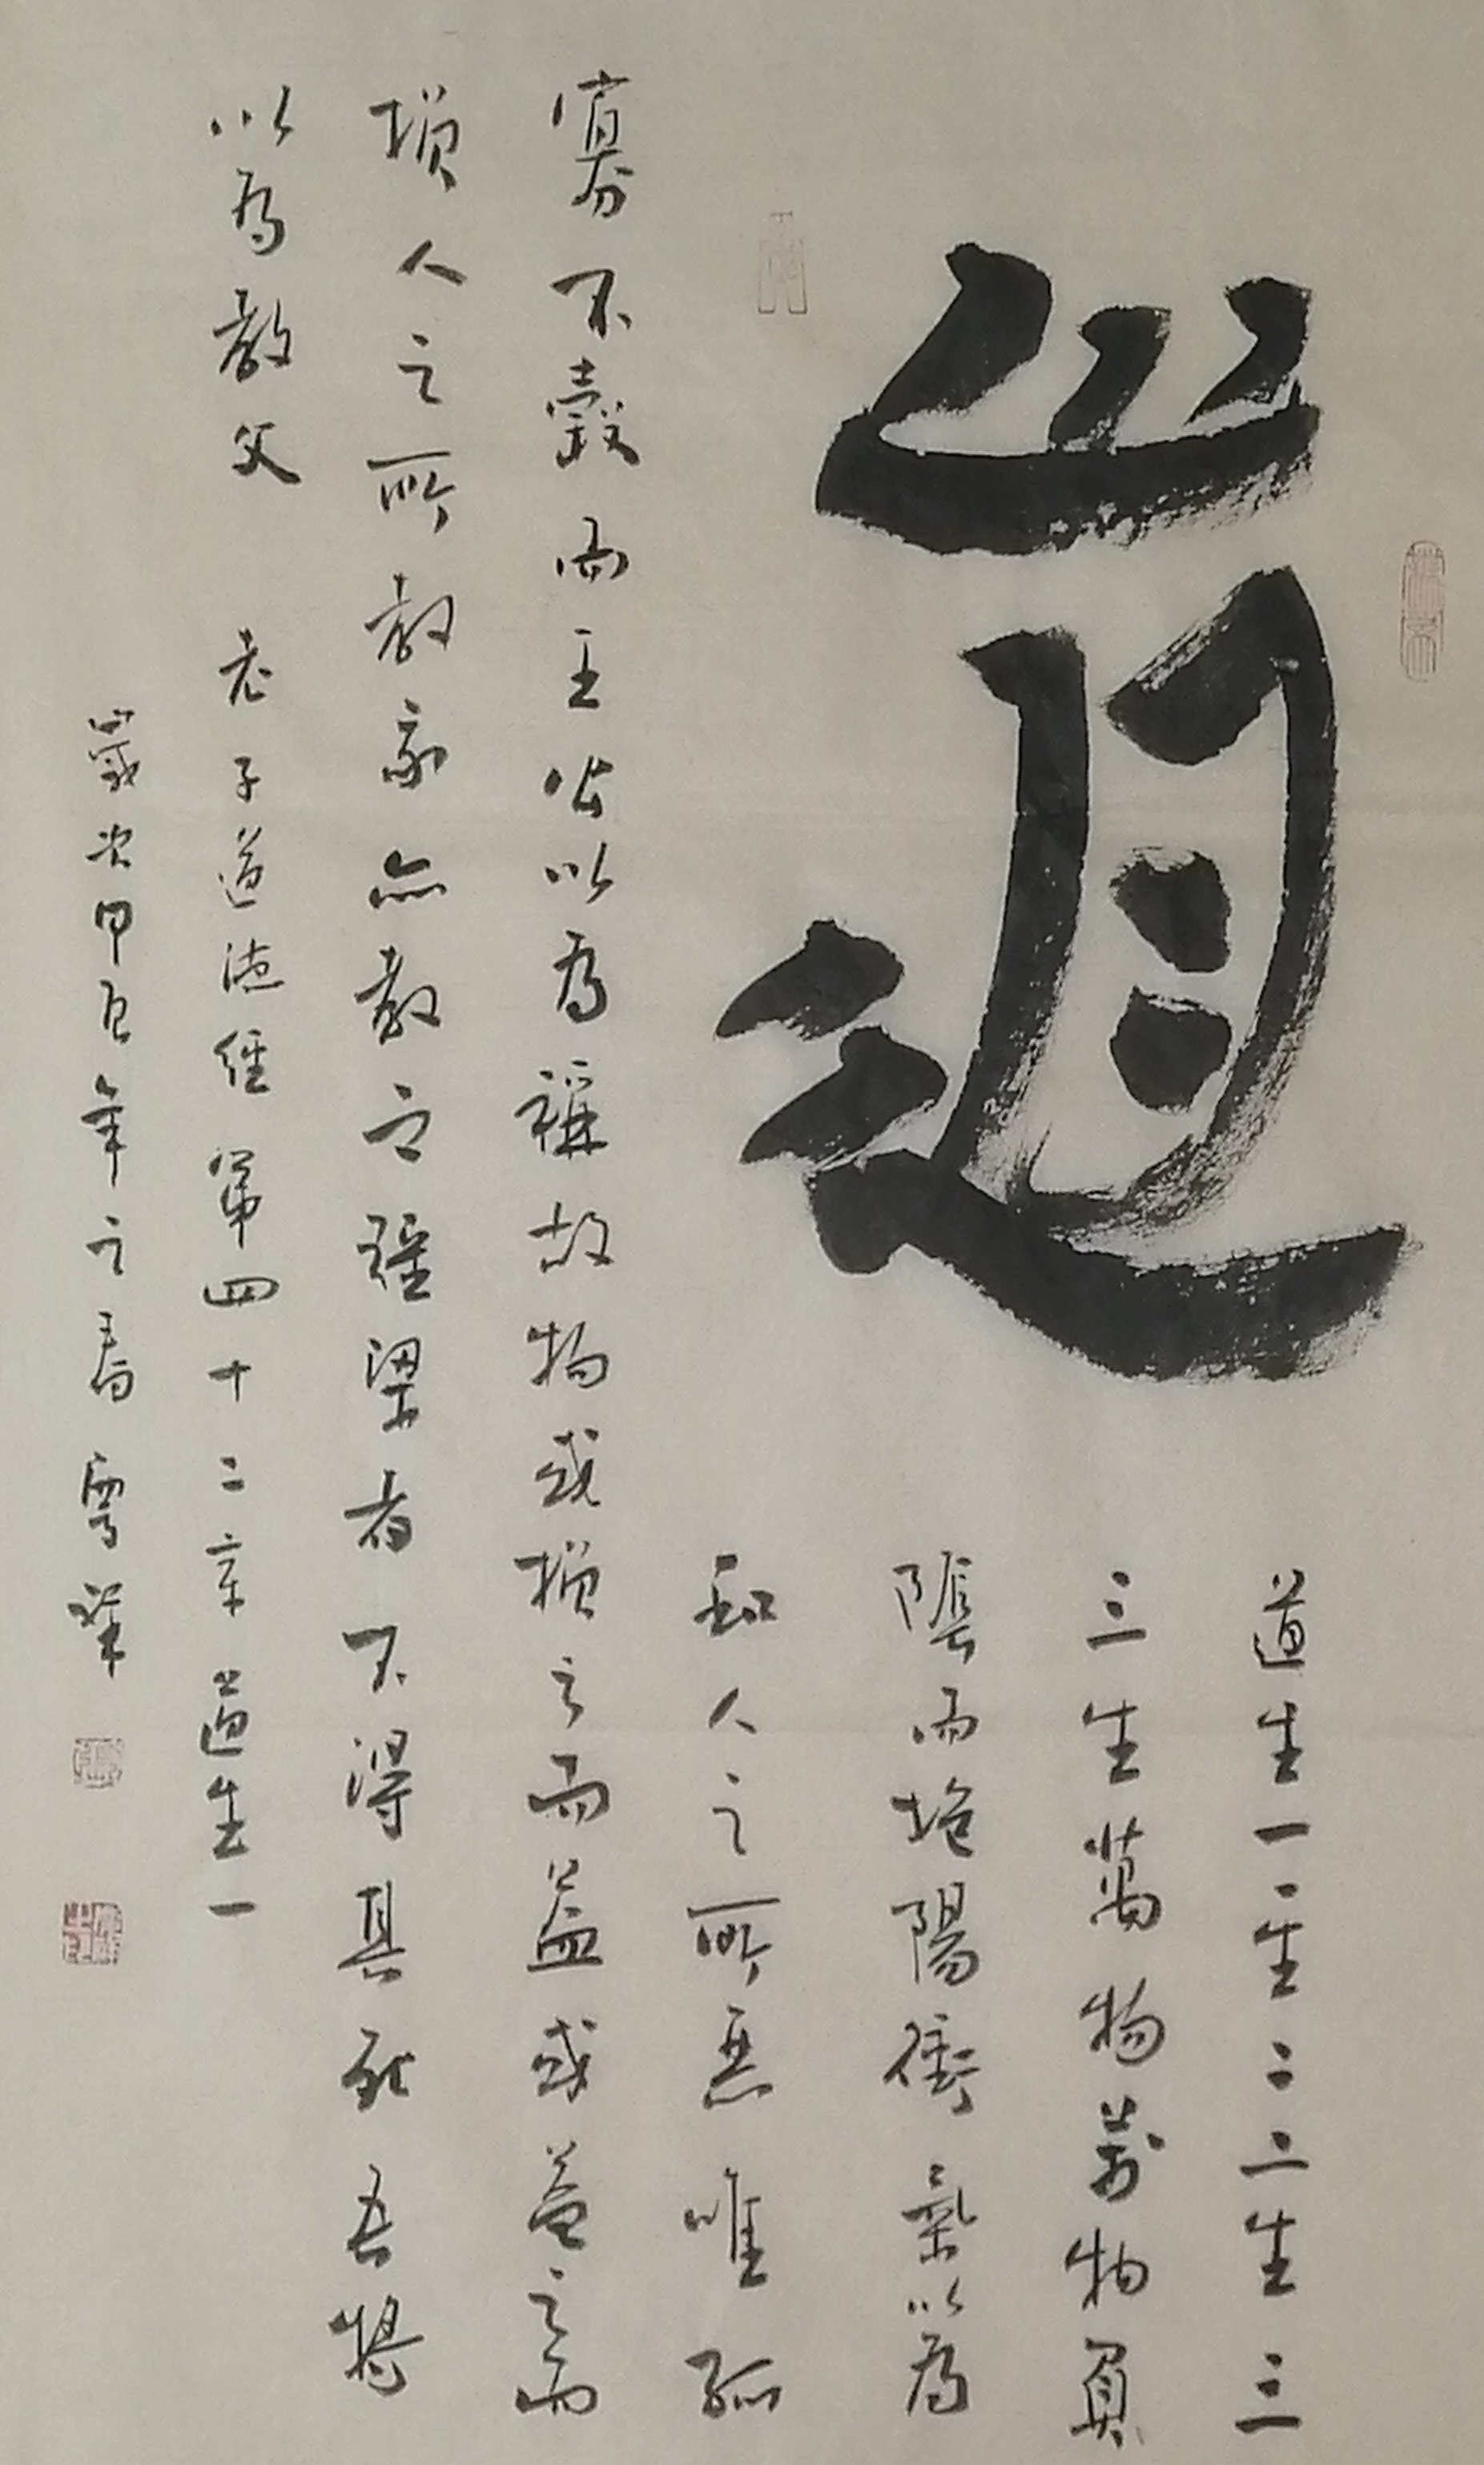 道
道生一一生二二生三
三生萬物萬物負
陰而抱陽衝氣以為
和人之所惡唯孤
寡不穀而王公以為稱故物或損之而益或益之而
損人之所教我亦教之強梁者不得其死吾將
以為教父 老子道德經 第四十二章 道生一
歲次甲辰年之春